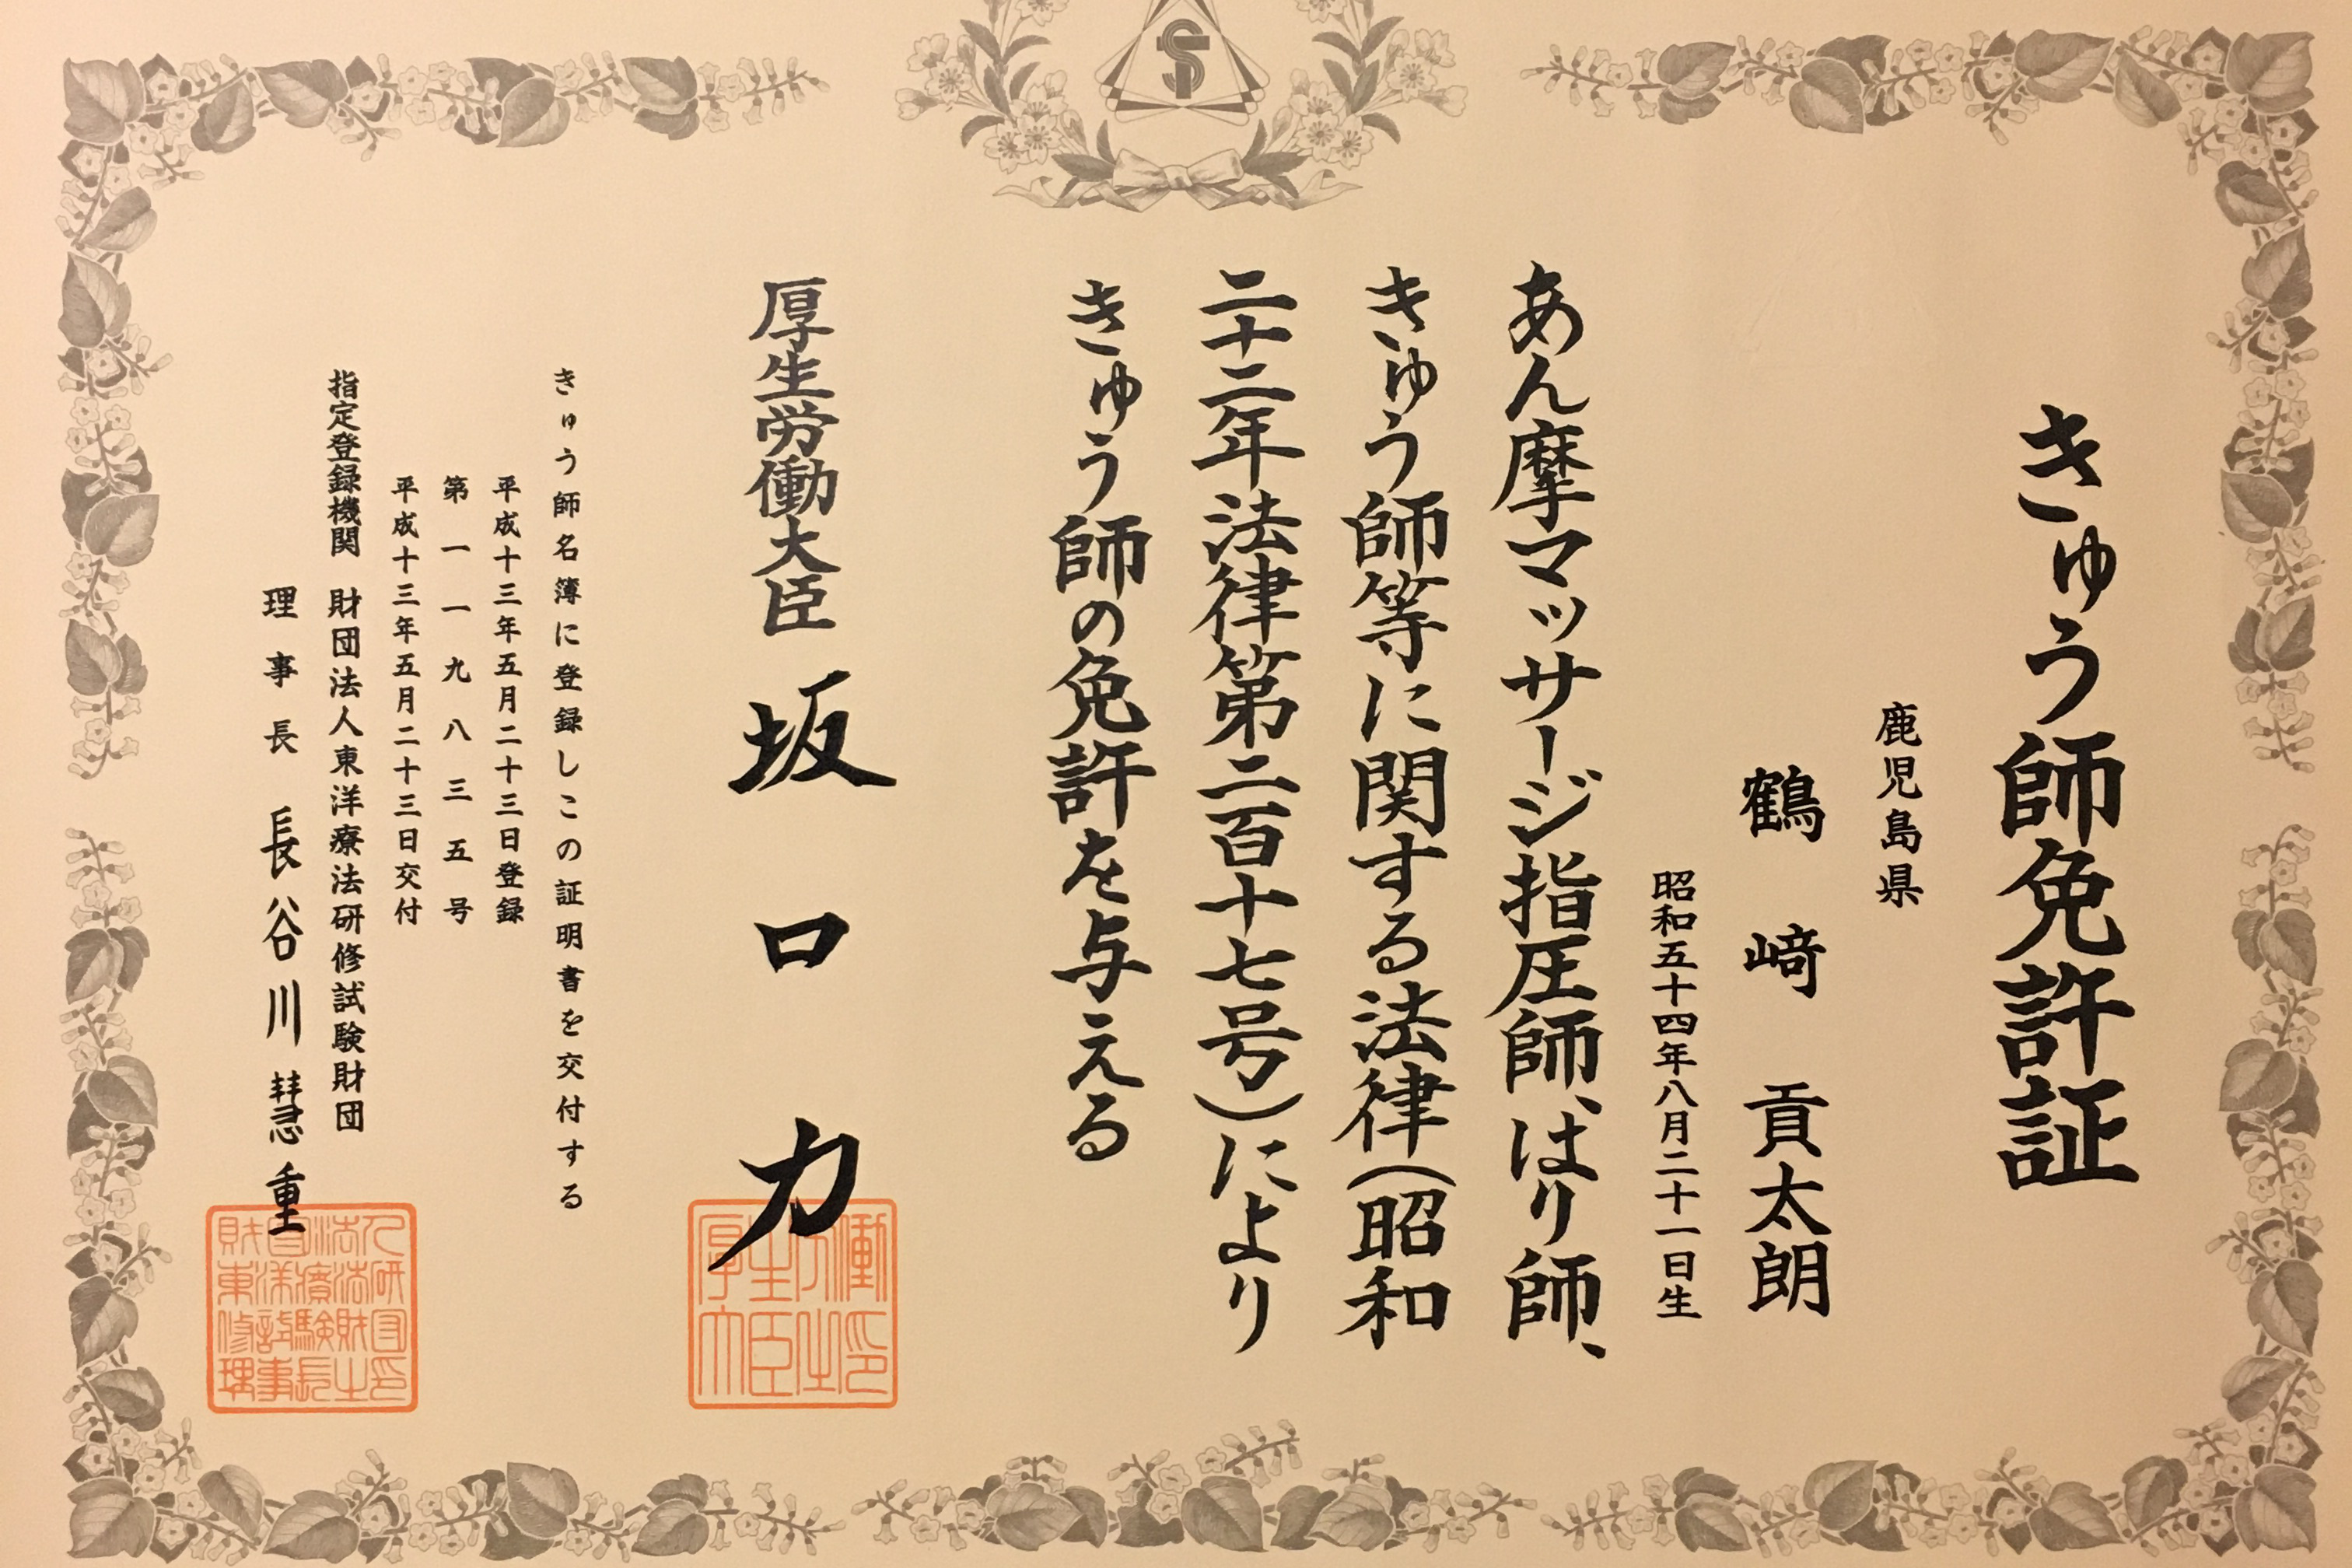 きゅう師免許証
鹿児島県
鶴﨑貢太朗
昭和五十四年八月二十一日生
あん摩マッサージ指圧師、はり師、
きゅう師等に関する法律(昭和
二十二年法律第二百十七号)により
きゅう師の免許を与える
厚生労働大臣 坂口力
きゅう師名簿に登録しこの証明書を交付する
平成十三年五月二十三日登録
第一一九八三五号
平成十三年五月二十三日交付
指定登録機関 財団法人東洋療法研修試験財団
理事長 長谷川慧重